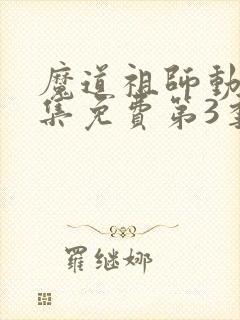 魔道祖師動
集免費第3季
羅繼娜